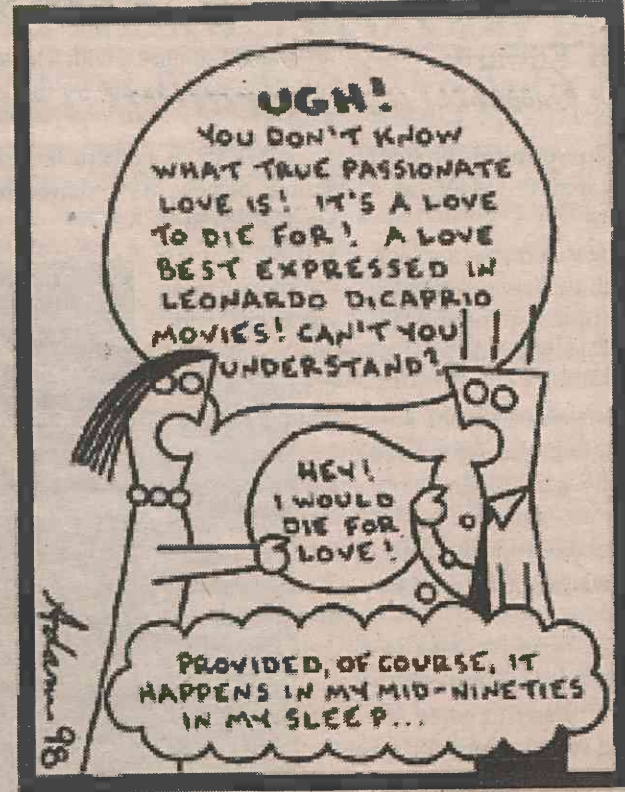 UGH!
YOU DON'T KNOW
WHAT TRUE PASSIONATE
LOVE IS! IT'S A LOVE
TO DIE FOR! A LOVE
BEST EXPRESSED IN
LEONARDO DICAPRIO
MOVIES! CAN'T YOU
UNDERSTAND?
HEY!
I WOULD
DIE FOR
LOVE!
PROVIDED, OF COURSE, IT
HAPPENS IN MY MID-NINETIES
IN MY SLEEP...
98